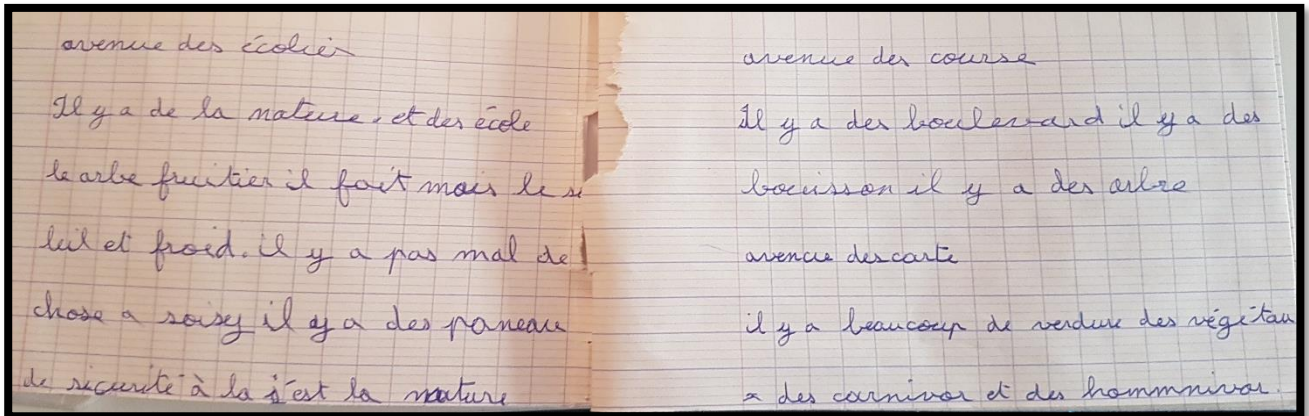 avenue des écolier
Il y a de la nature, et des école
le arbe fruitier il fait mais le s
lui et froid. il y a pas mal de
chose a soisy il y a des paneau
de sicurité à la c'est la nature
avenue des course
Il y a des boulevard il y a des
bouisson il y a des arbre
avenue descarte
il y a beaucoup de verdure des végétau
x des carnivor et des hommnivor.